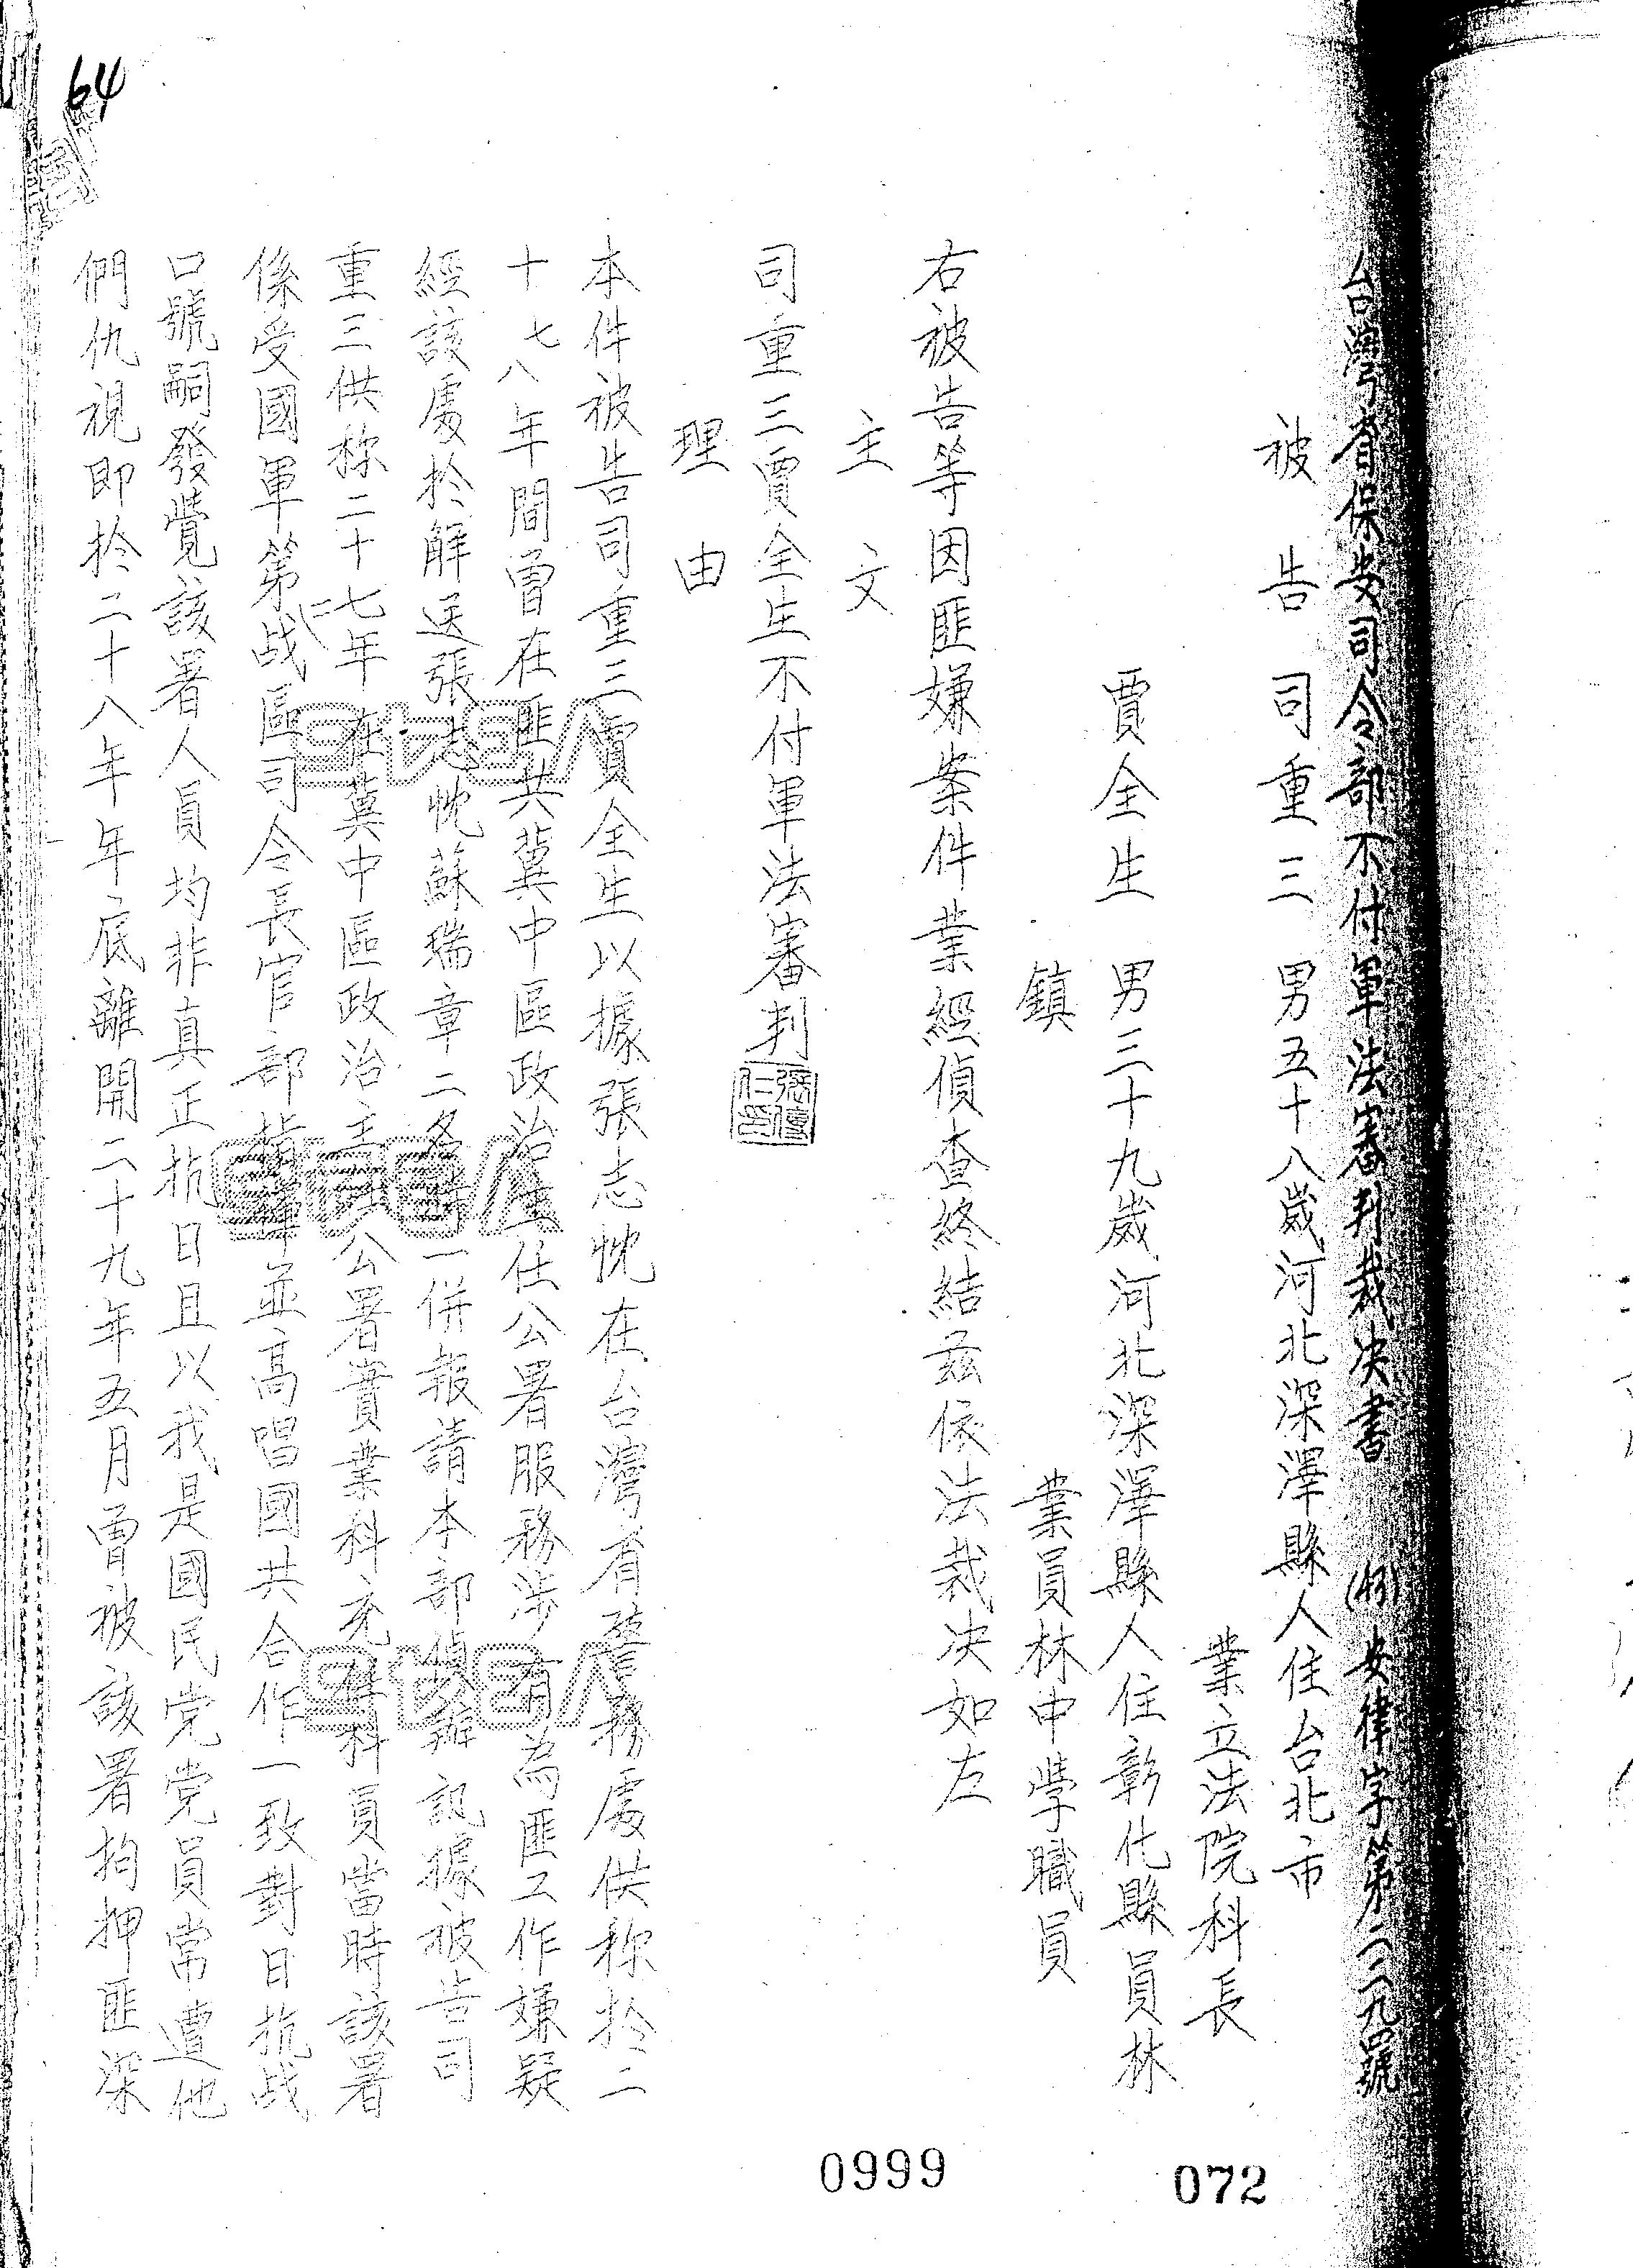 台灣省保安司令部不付軍法審判裁決書 (43) 安律字第二二九四號
被告 司重三 男五十八歲河北深澤縣人住台北市
業立法院科長
賈全生 男三十九歲河北深澤縣人住彰化縣員林
鎮 業員林中學職員
右被告等因匪嫌案件業經偵查終結茲依法裁決如左
主文
司重三賈全生不付軍法審判
理由
本件被告司重三賈全生以據張志忱在台灣省警務處供称於二
十七八年間曾在匪共冀中區政治主任公署服務涉有為匪工作嫌疑
經該處於解送張志忱蘇瑞章二名時一併報請本部偵辦訊據被告司
重三供称二十七年在冀中區政治主任公署實業科充科員當時該署
係受國軍第二战區司令長官部指揮並高唱國共合作一致對日抗战
口號嗣發覺該署人員均非真正抗日且以我是國民党党員常遭他
們仇視即於二十八年年底離開二十九年五月曾被該署拘押匪深
64
0999
072